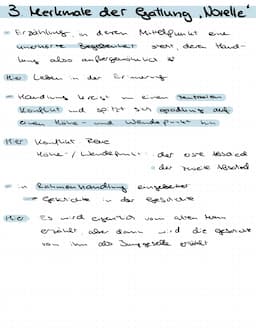 3 Merkmale der Gattung „Novelle"
- Erzählung, in deren Mittelpunkt eine
unerhörte Begebenheit steht, deren Hand-
lung also außergewöhnlich ist
Hier: Leben in der Erinnerung
- Handlung kreist um einen zentralen
Konflikt und spitzt sich auf
einen Höhe- und Wendepunkt hin
Hier: Konflikt
Höhe-/Wendepunkt: der erste Abschied
der zweite Abschied
- in Rahmenhandlung eingebettet
→ Geschichte in der Geschichte
Hier: Es wird eigentlich vom alten Mann
erzählt, aber dann wird die Geschichte
von ihm als Junggeselle erzählt